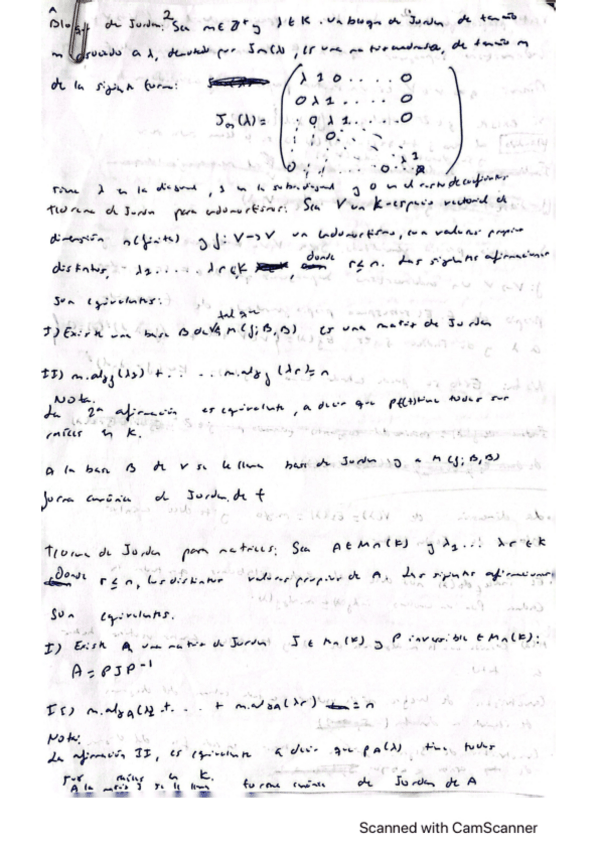 Bloque de Jordan: Sea m ∈ Z+ y λ ∈ K. Un bloque de Jordan de tamaño
m asociado a λ, denotado por Jm(λ), es una matriz cuadrada, de tamaño m
de la siguiente forma:
Jm(λ) =
λ 1 0 . . . . 0
0 λ 1 . . . . 0
: 0 λ 1 . . . 0
: : 0
λ 1
0 0 λ
Tiene λ en la diagonal, y 0 en el resto de
Teorema de Jordan para endomorfismos: Sea V un K-espacio vectorial de
dimensión n (finita) y f: V → V un endomorfismo, con valores propios
distintos, λ1 . . . . . λr ∈ K donde r ≤ n. Las siguientes afirmaciones
son equivalentes:
I) Existe una base B de V, tal que M(f; B, B) es una matriz de Jordan
II) m.algf(λ1) + . . . . m.algf(λr) = n
Nota.
La 2ª afirmación es equivalente, a decir que pf(t) tiene todas sus
raíces en K.
A la base B de V se le llama base de Jordan y a M(f; B, B)
forma canónica de Jordan de f
Teorema de Jordan para matrices: Sea A ∈ Mn(K) y λ1 ... λr ∈ K
donde r ≤ n, los distintos valores propios de A. Las siguientes afirmaciones
son equivalentes.
I) Existe una matriz de Jordan J ∈ Mn(K) y P inversible ∈ Mn(K):
A = PJP-1
II) m.algA(λ1) + . . . + m.algA(λr) = n
Nota:
La afirmación II, es equivalente a decir que pA(λ) tiene todas
sus raíces en K.
A la matriz J se le llama forma canónica de Jordan de A
Scanned with CamScanner